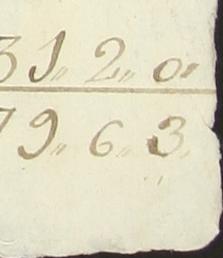 31,, 2,, 0,,
79,, 6,, 3,,